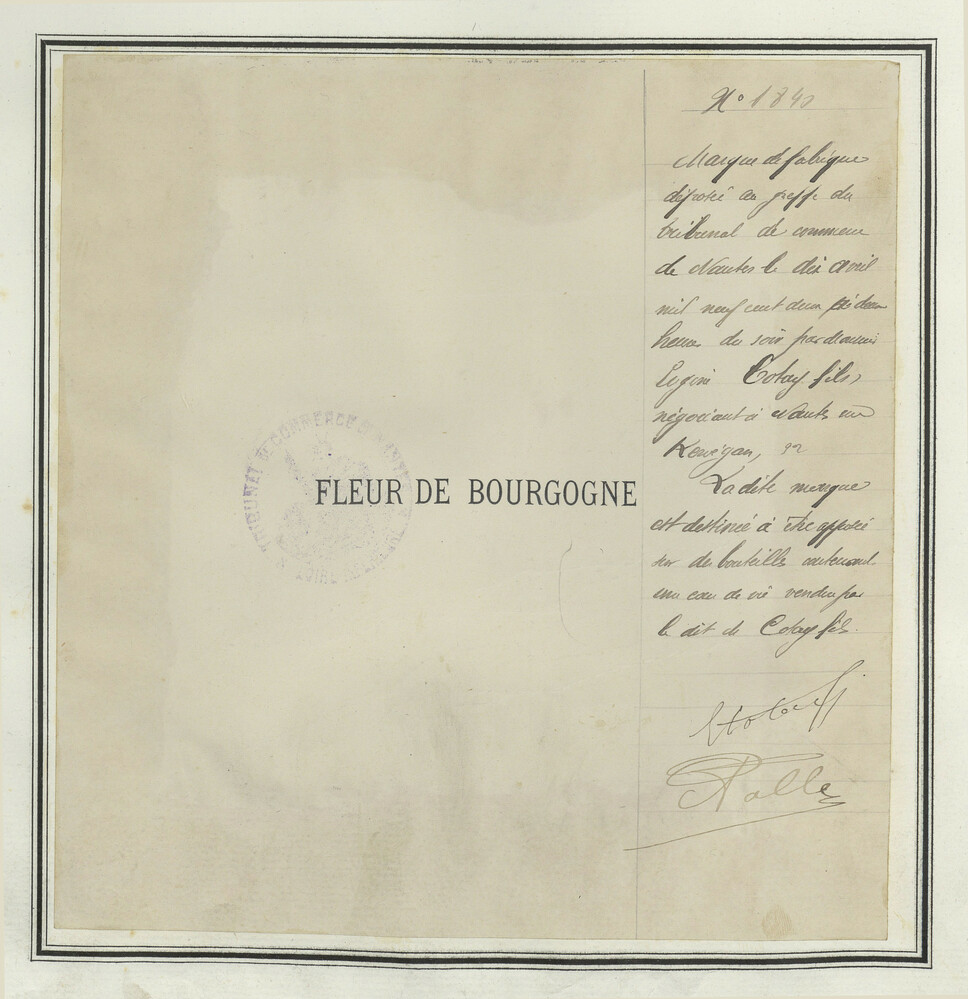 FLEUR DE BOURGOGNE
TRIBUNAL DE COMMERCE DE NANTES
LOIRE INFERIEURE
No 1840
Marque de fabrique
déposée au greffe du
tribunal de commerce
de Nantes le dix avril
mil neuf cent deux à deux
heures du soir par Monsieur
Eugène Cotay fils,
négociant à Nantes rue
Kervégan, 32
La dite marque
est destinée à être apposée
sur des bouteilles contenant
une eau de vie vendue par
le dit de Cotay fils.